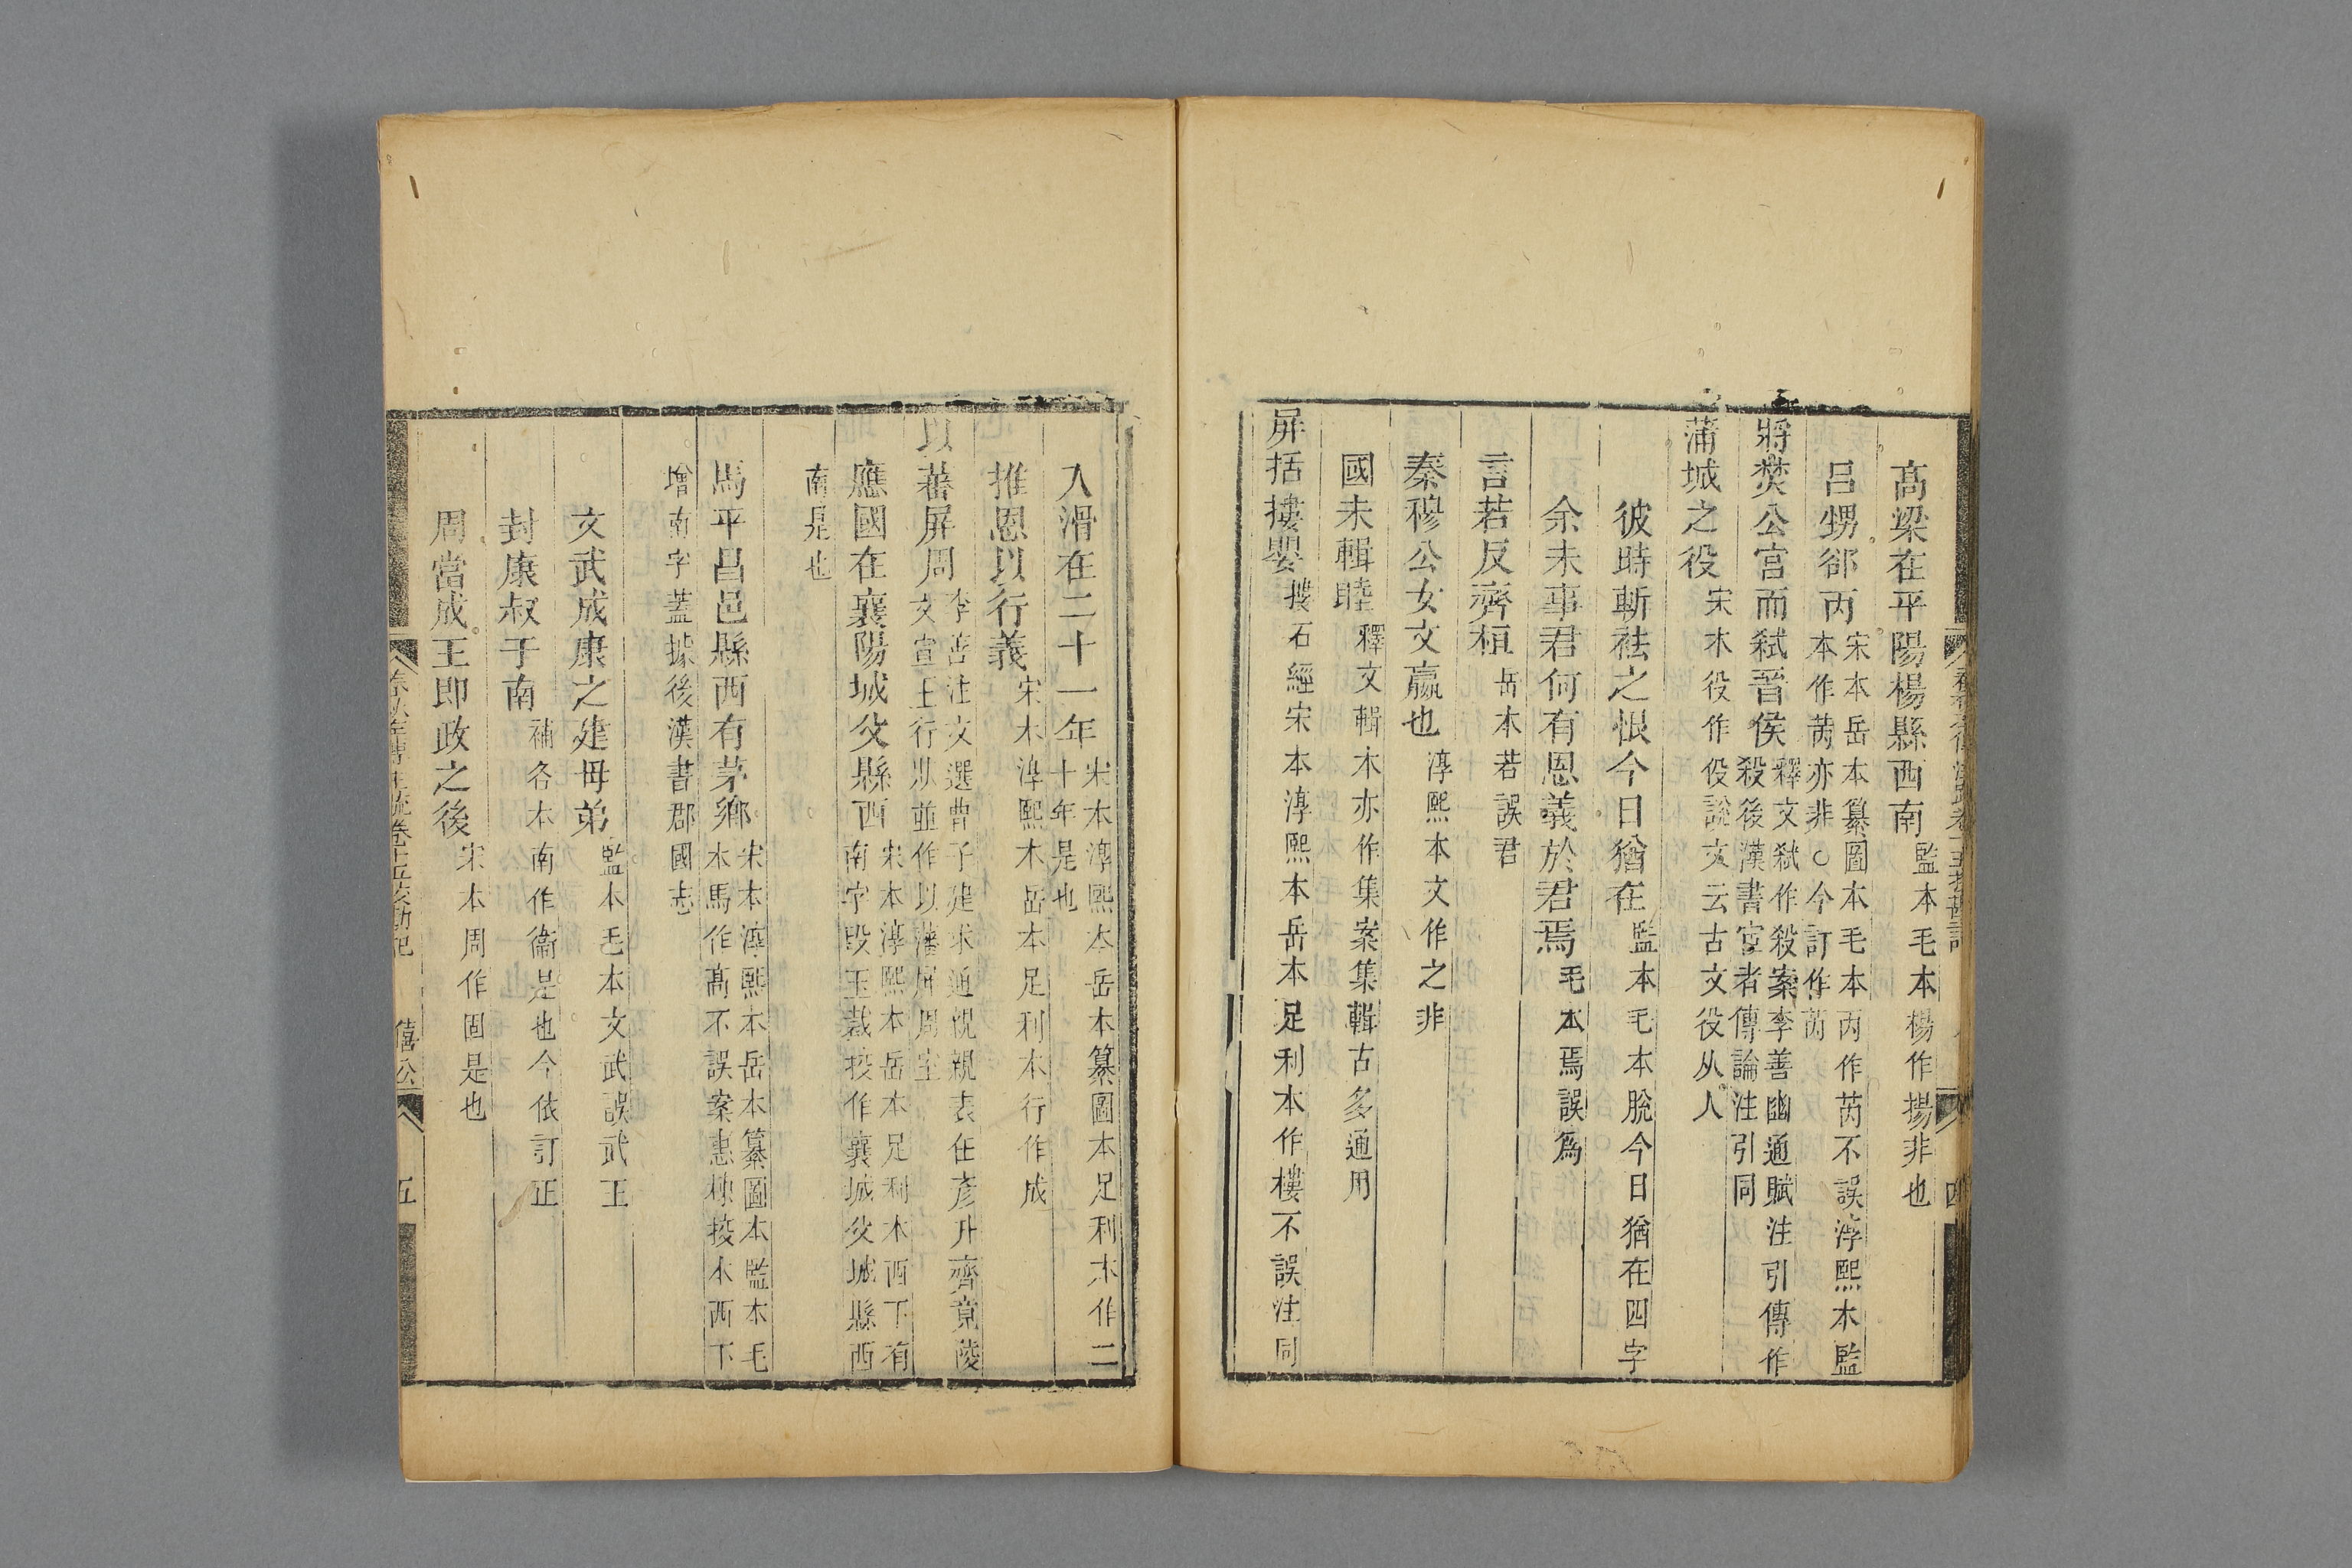 高梁在平陽楊縣西南監本毛本楊作揚非也
呂甥郤丙宋本岳本纂圖本毛本丙作芮不誤淳熙本監本作苪亦非○今訂作芮
將焚公宮而弒晉侯釋文弒作殺案李善幽通賦注引傳作殺後漢書宦者傳論注引同
蒲城之役宋本役作伇說文云古文役从人
彼時斬袪之恨今日猶在監本毛本脫今日猶在四字
余未事君何有恩義於君焉毛本焉誤為
言若反齊桓岳本若誤君
秦穆公女文嬴也淳熙本文作之非
國未輯睦釋文輯本亦作集案集輯古多通用
屏括摟嬰摟石經宋本淳熙本岳本足利本作樓不誤注同
入滑在二十一年宋本淳熙本岳本纂圖本足利本作二十年是也
推恩以行義宋本淳熙本岳本足利本行作成
以蕃屏周李善注文選曹子建求通親親表任彥升齊竟陵文宣王行狀並作以藩屏周室
應國在襄陽城父縣西宋本淳熙本岳本足利本西下有南字段玉裁挍作襄城父城縣西
南是也
馬平昌邑縣西有茅鄉宋本淳熙本岳本纂圖本監本毛本馬作高不誤案惠棟挍本西下
增南字蓋據後漢書郡國志
文武成康之建母弟監本毛本文武誤武王
封康叔于南補各本南作衞是也今依訂正
周當成王即政之後宋本周作固是也
春秋左傳注疏卷十五挍勘記 僖公 五